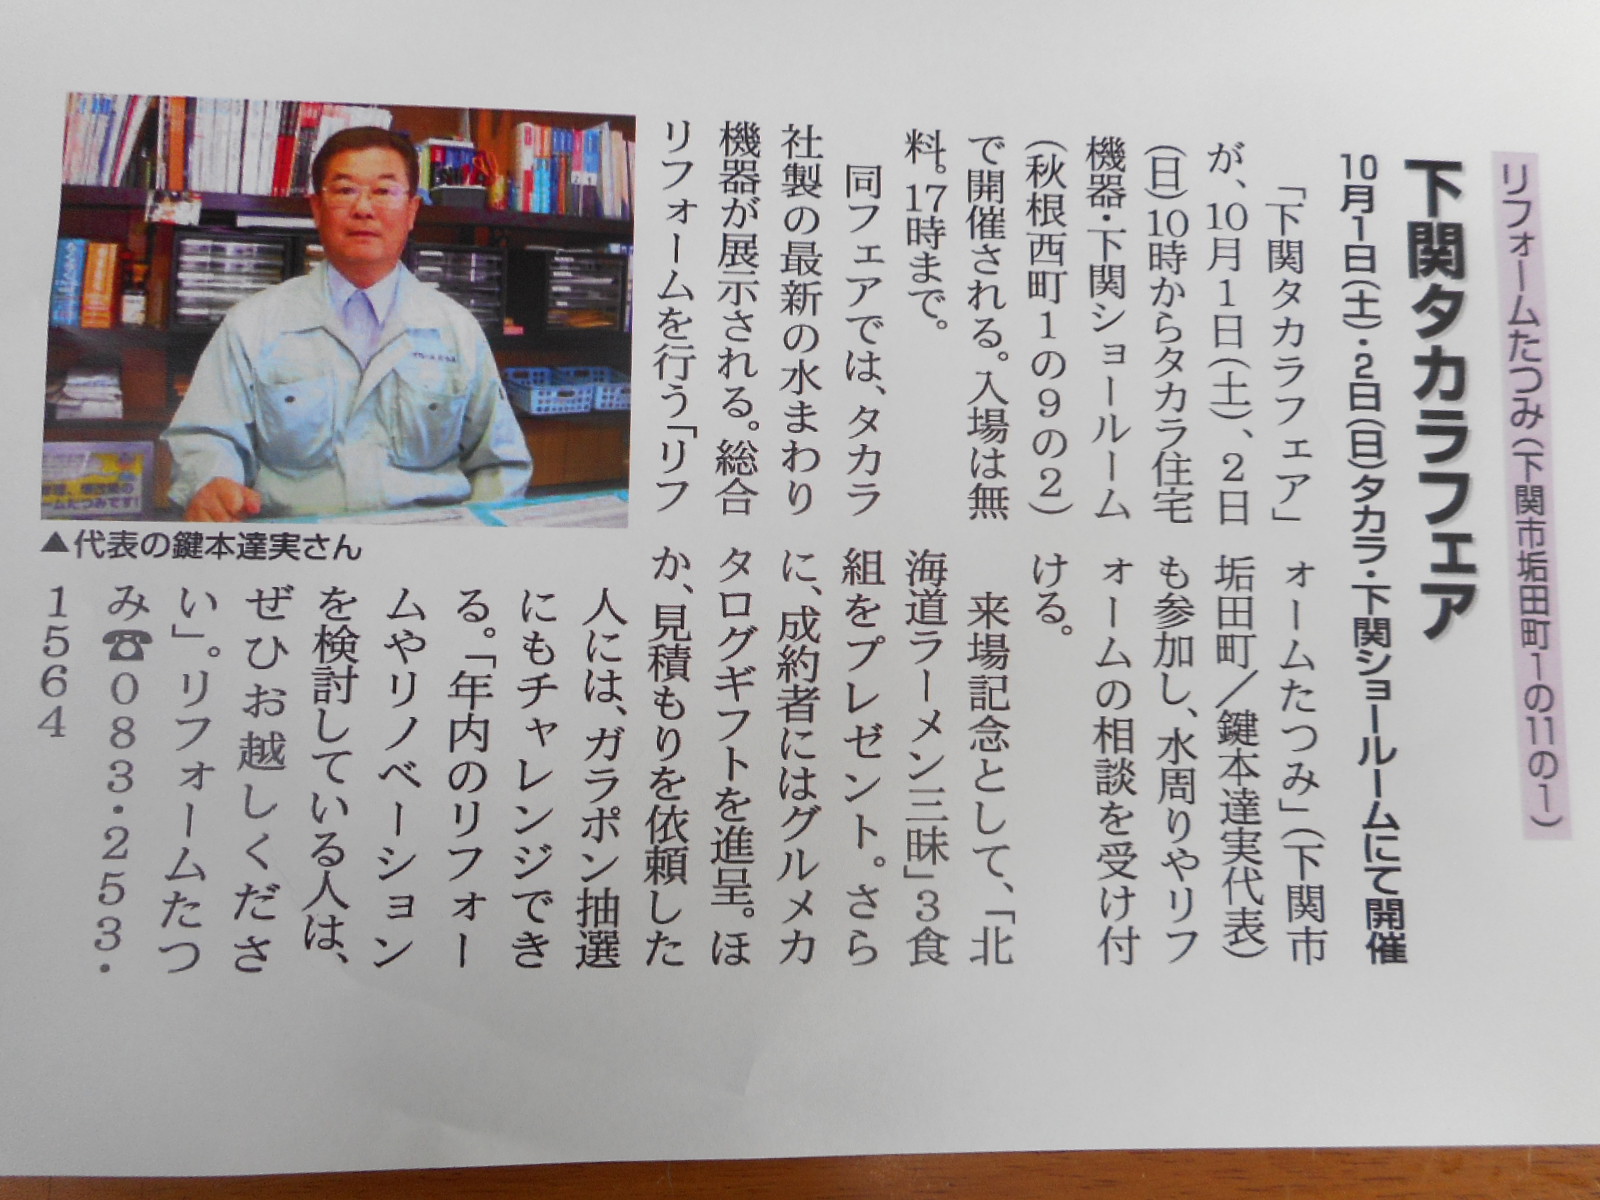 リフォームたつみ(下関市垢田町1の11の1)
下関タカラフェア
10月1日(土)・2日(日)タカラ・下関ショールームにて開催
「下関タカラフェア」
が、10月1日(土)、2日
(日)10時からタカラ住宅
機器・下関ショールーム
(秋根西町1の9の2)
で開催される。入場は無
料。17時まで。
同フェアでは、タカラ
社製の最新の水まわり
機器が展示される。総合
リフォームを行う「リフ
ォームたつみ」(下関市
垢田町／鍵本達実代表)
も参加し、水周りやリフ
ォームの相談を受け付
ける。
来場記念として、「北
海道ラーメン三昧」3食
組をプレゼント。さら
に、成約者にはグルメカ
タログギフトを進呈。ほ
か、見積もりを依頼した
人には、ガラポン抽選
にもチャレンジでき
る。「年内のリフォー
ムやリノベーション
を検討している人は、
ぜひお越しくださ
い」。リフォームたつ
み☎083・253・
1564
▲代表の鍵本達実さん
ームたつみです!